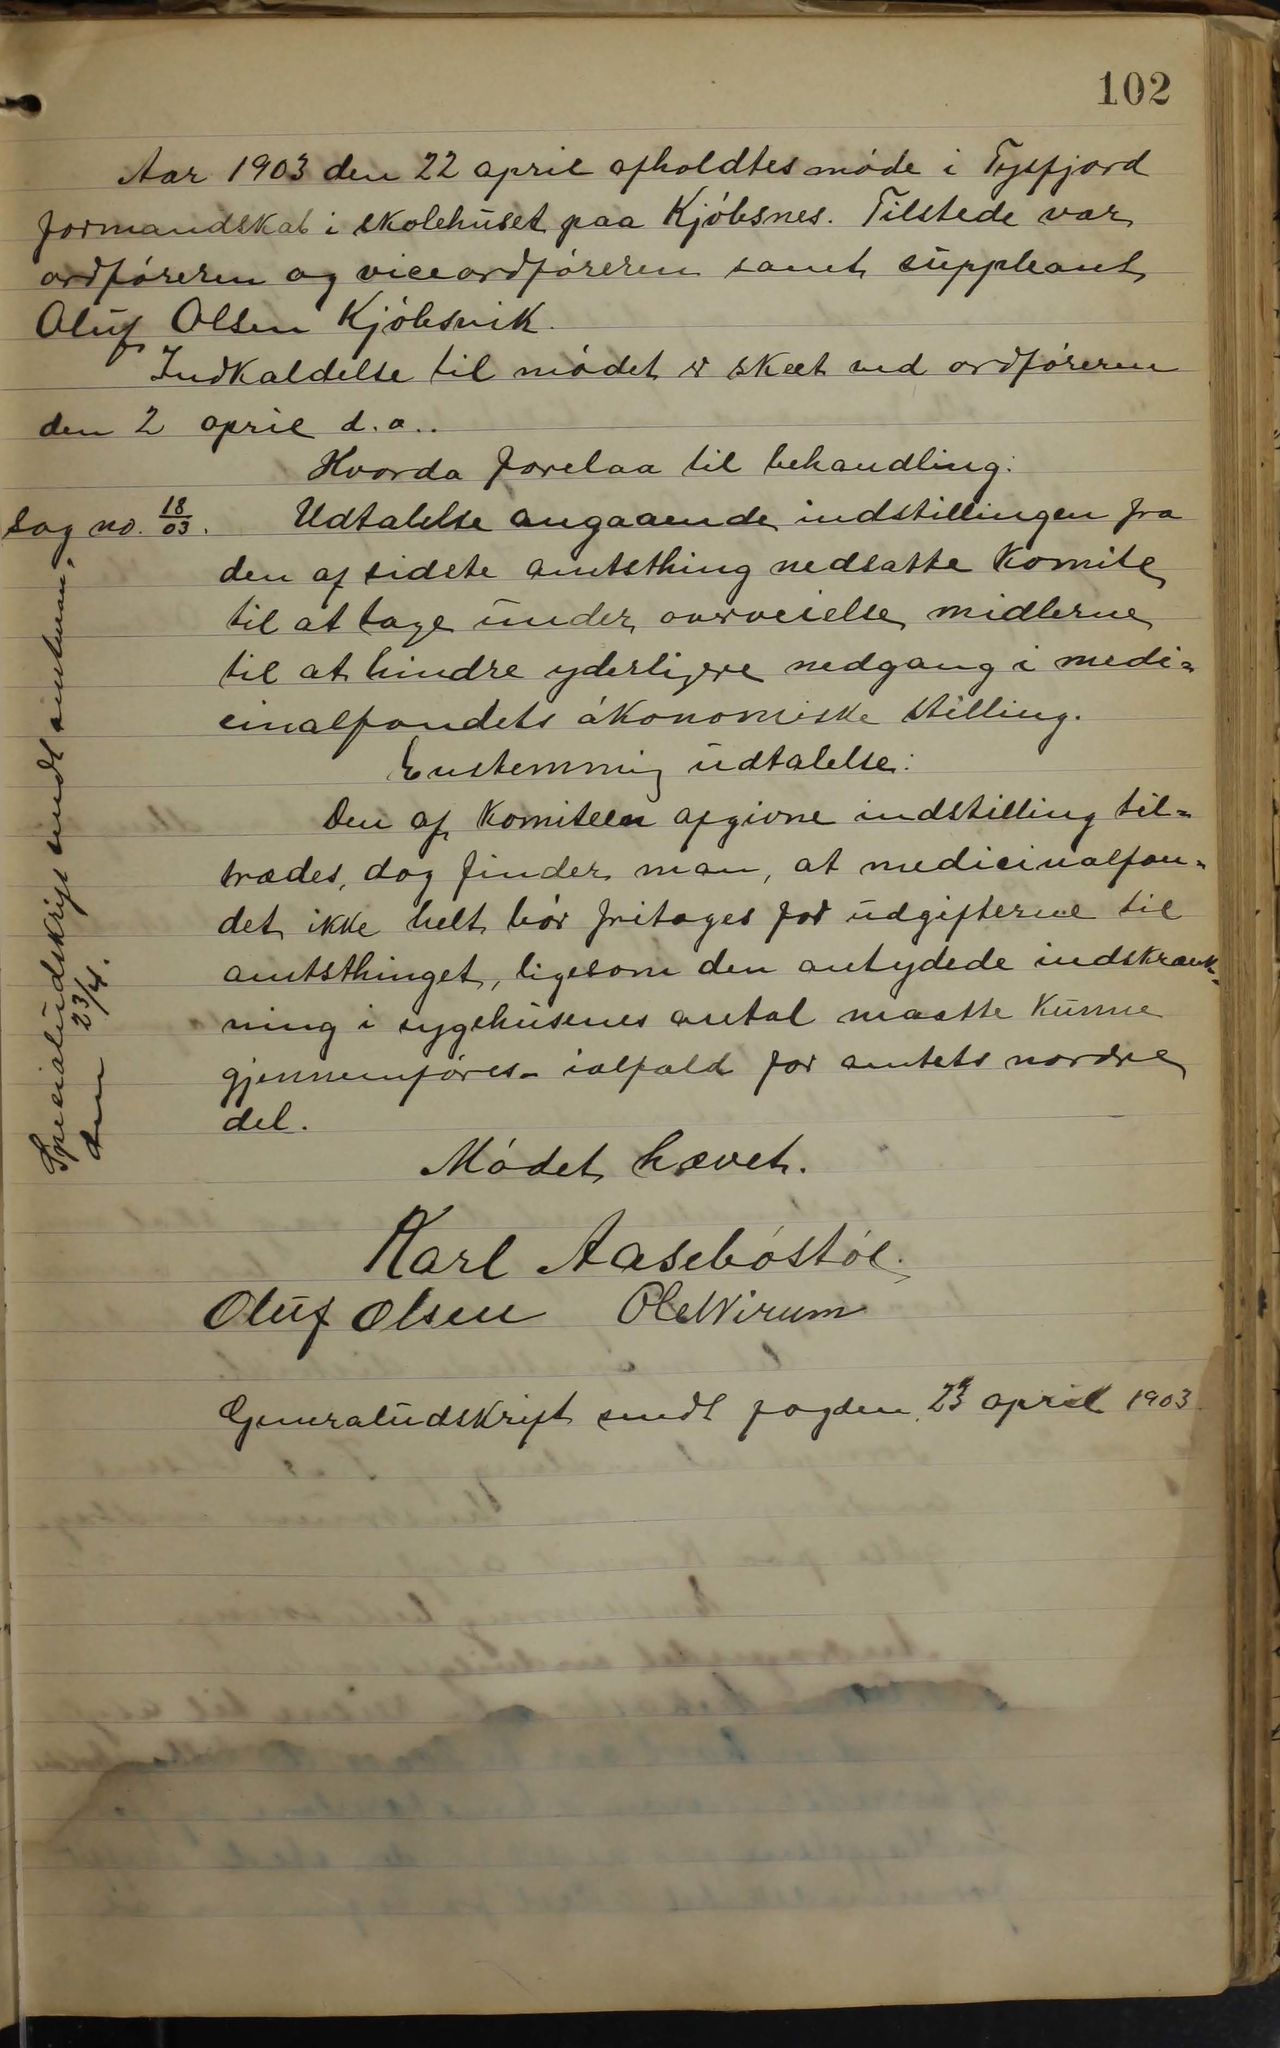 102
Aar 1903 den 22 april afholdtes møde i Tysfjord
formandskab i skolehuset paa Kjøbsnes. Tilstede var
ordføreren og viceordføreren samt suppleant
Oluf Olsen Kjøbsvik.
Indkaldelse til mødet er skeet ved ordføreren
den 2 april d.a..
Hvorda forelaa til behandling:
Sag no. 18/03. Udtalelse angaaende indstillingen fra
den af sidste amtsthing nedsatte komite
til at tage under overveielse midlerne
til at hindre yderligere nedgang i medi-
cinalfondets økonomiske stilling.
Enstemmig udtalelse:
Den af komiteen afgivne indstilling til-
trædes, dog finder man, at medicinalfon-
det ikke helt bør fritages for udgifterne til
amtsthinget, ligesom den antydede indskrænk-
ning i sygehusenes antal maatte kunne
gjennemføres - ialfald for amtets nordre
del.
Mødet hævet.
Karl Aasebøstøl.
Oluf Olsen Ole Wirum
Generaludskrift sendt fogden 23 april 1903
Specialudskrift sendt amtman.
den 23/4.